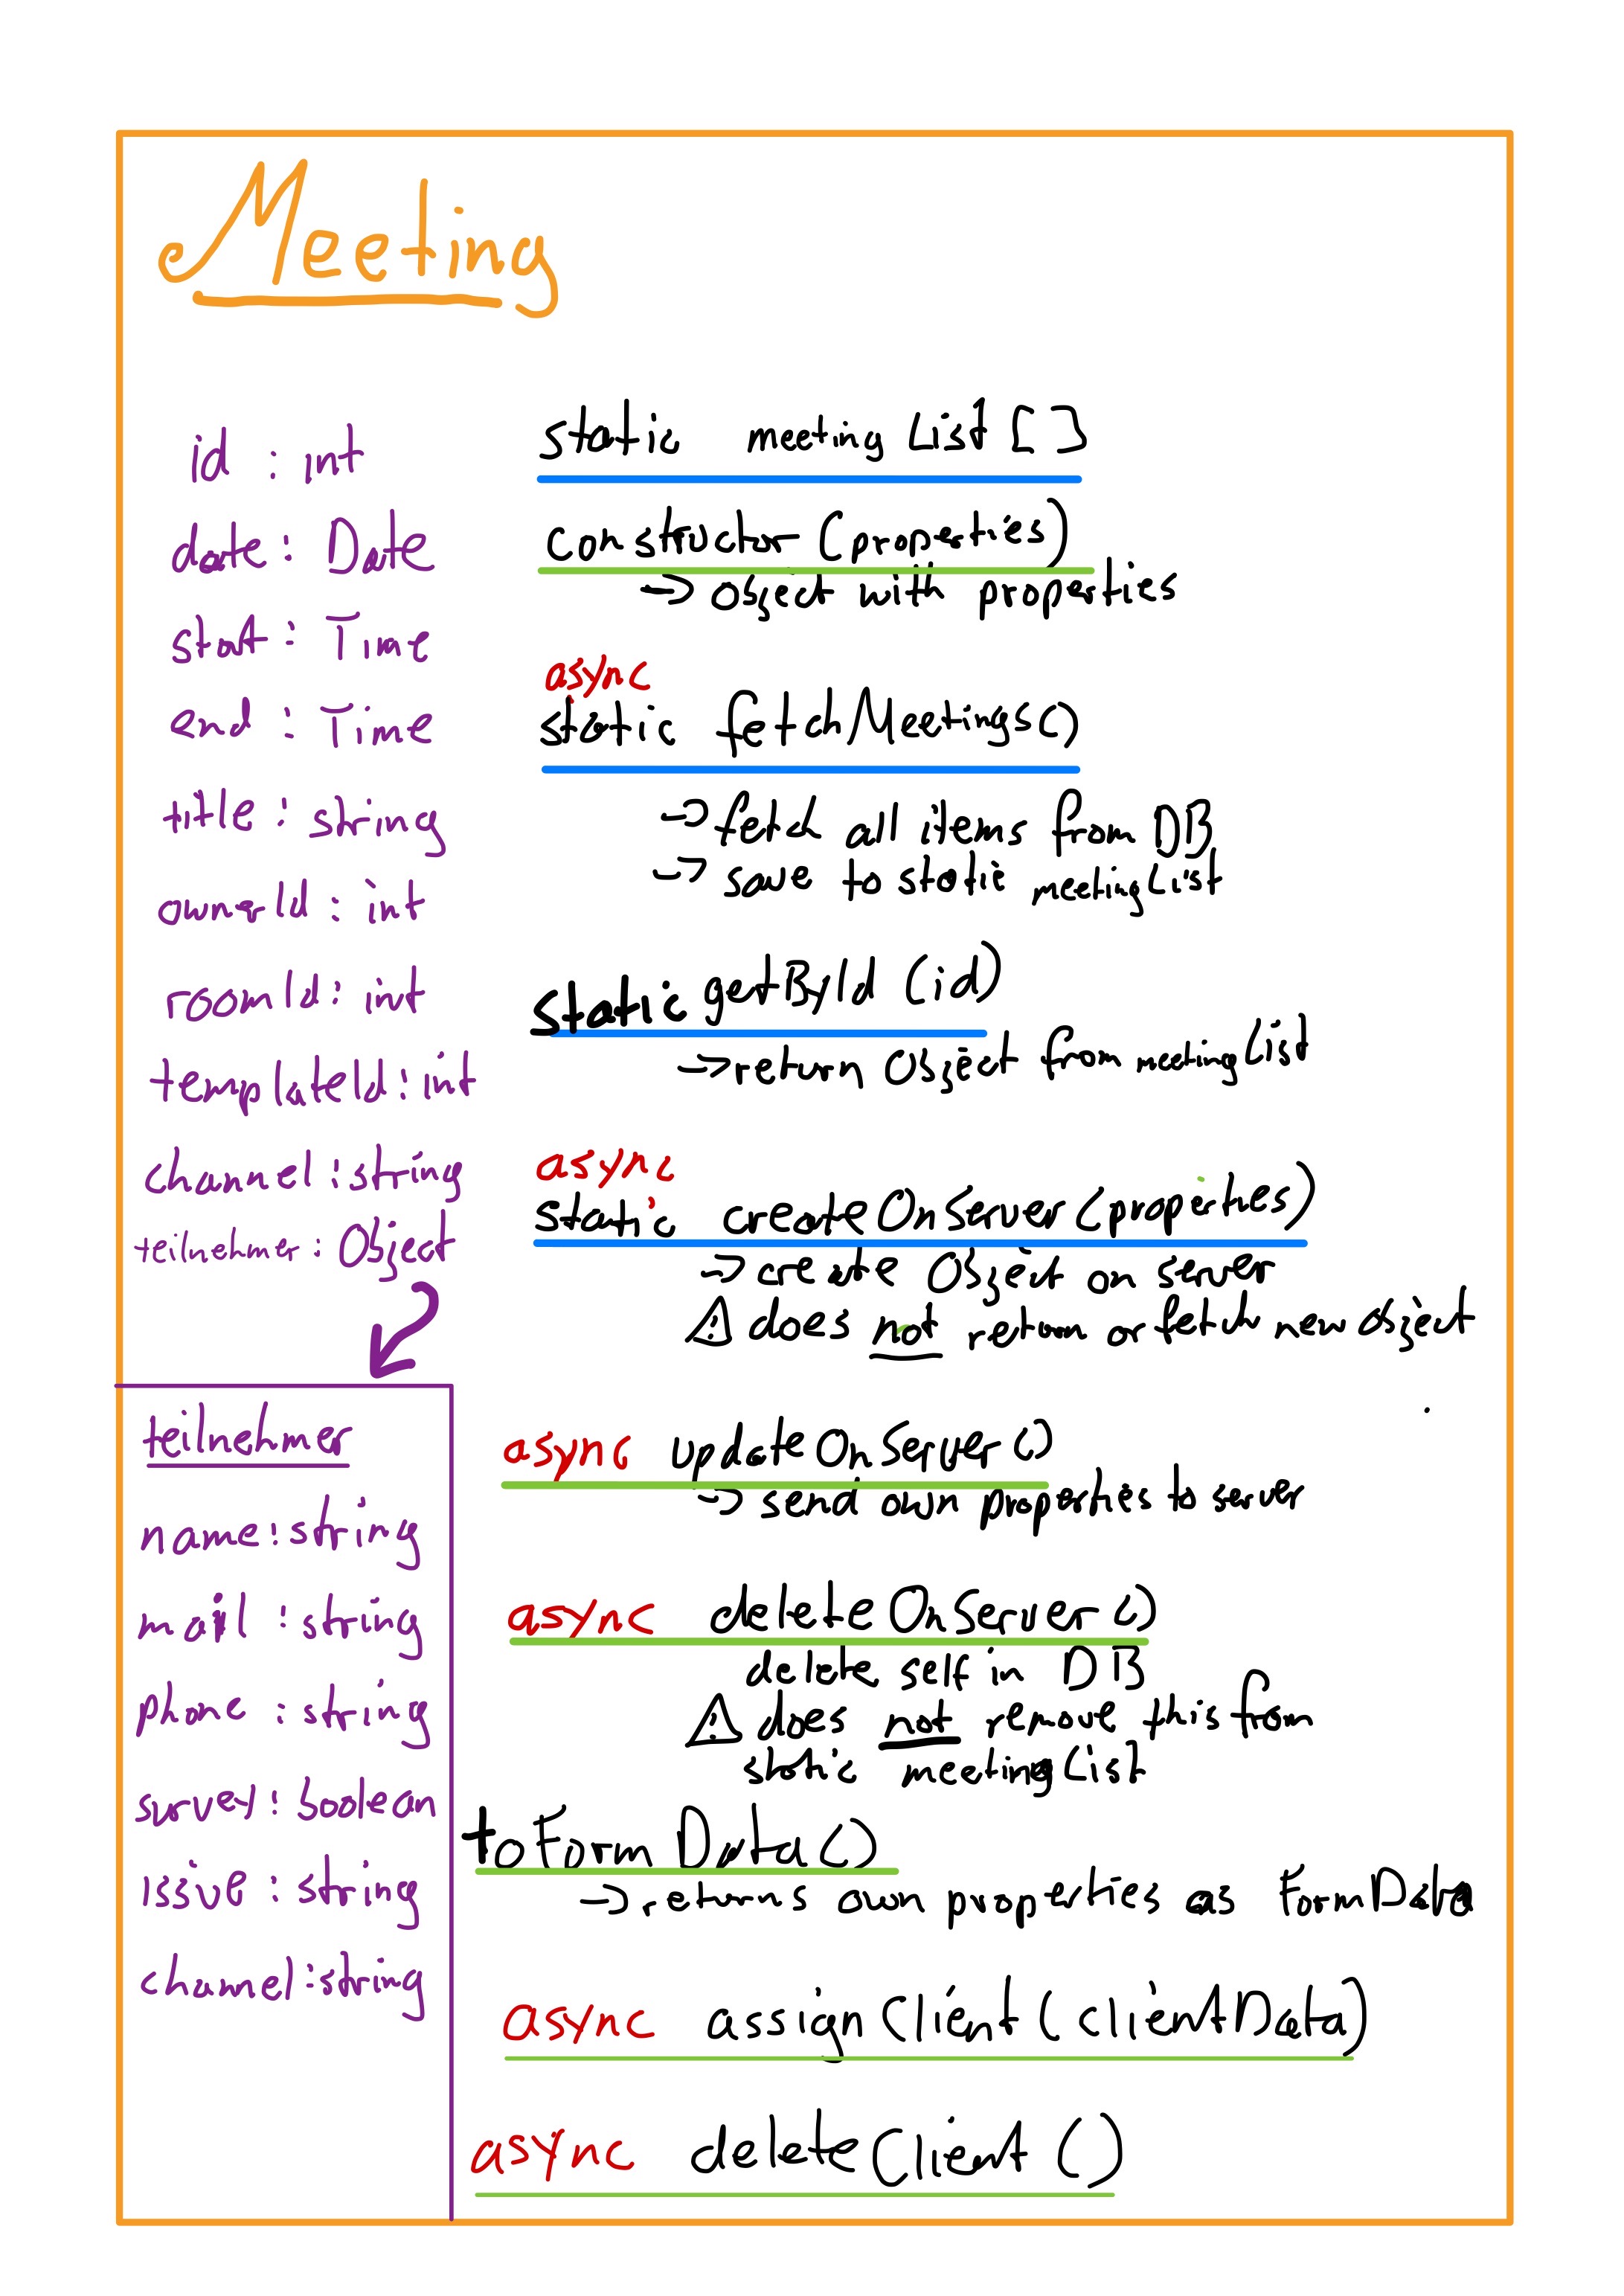 Meeting
id : int
date : Date
start : Time
end : Time
title : string
ownerId : int
roomId : int
templateId : int
channel : string
teilnehmer : Object
teilnehmer
name : string
mail : string
phone : string
survey : boolean
issue : string
channel : string
static meetingList []
constructor (properties)
→ object with properties
async
static fetchMeetings()
→ fetch all items from DB
→ save to static meetingList
static getById (id)
→ return Object from meetingList
async
static createOnServer (properties)
→ create Object on server
⚠ does not return or fetch new object
async updateOnServer ()
→ send own properties to server
async deleteOnServer ()
delete self in DB
⚠ does not remove this from
static meetingList
toFormData ()
→ returns own properties as FormData
async assignClient (clientData)
async deleteClient ()